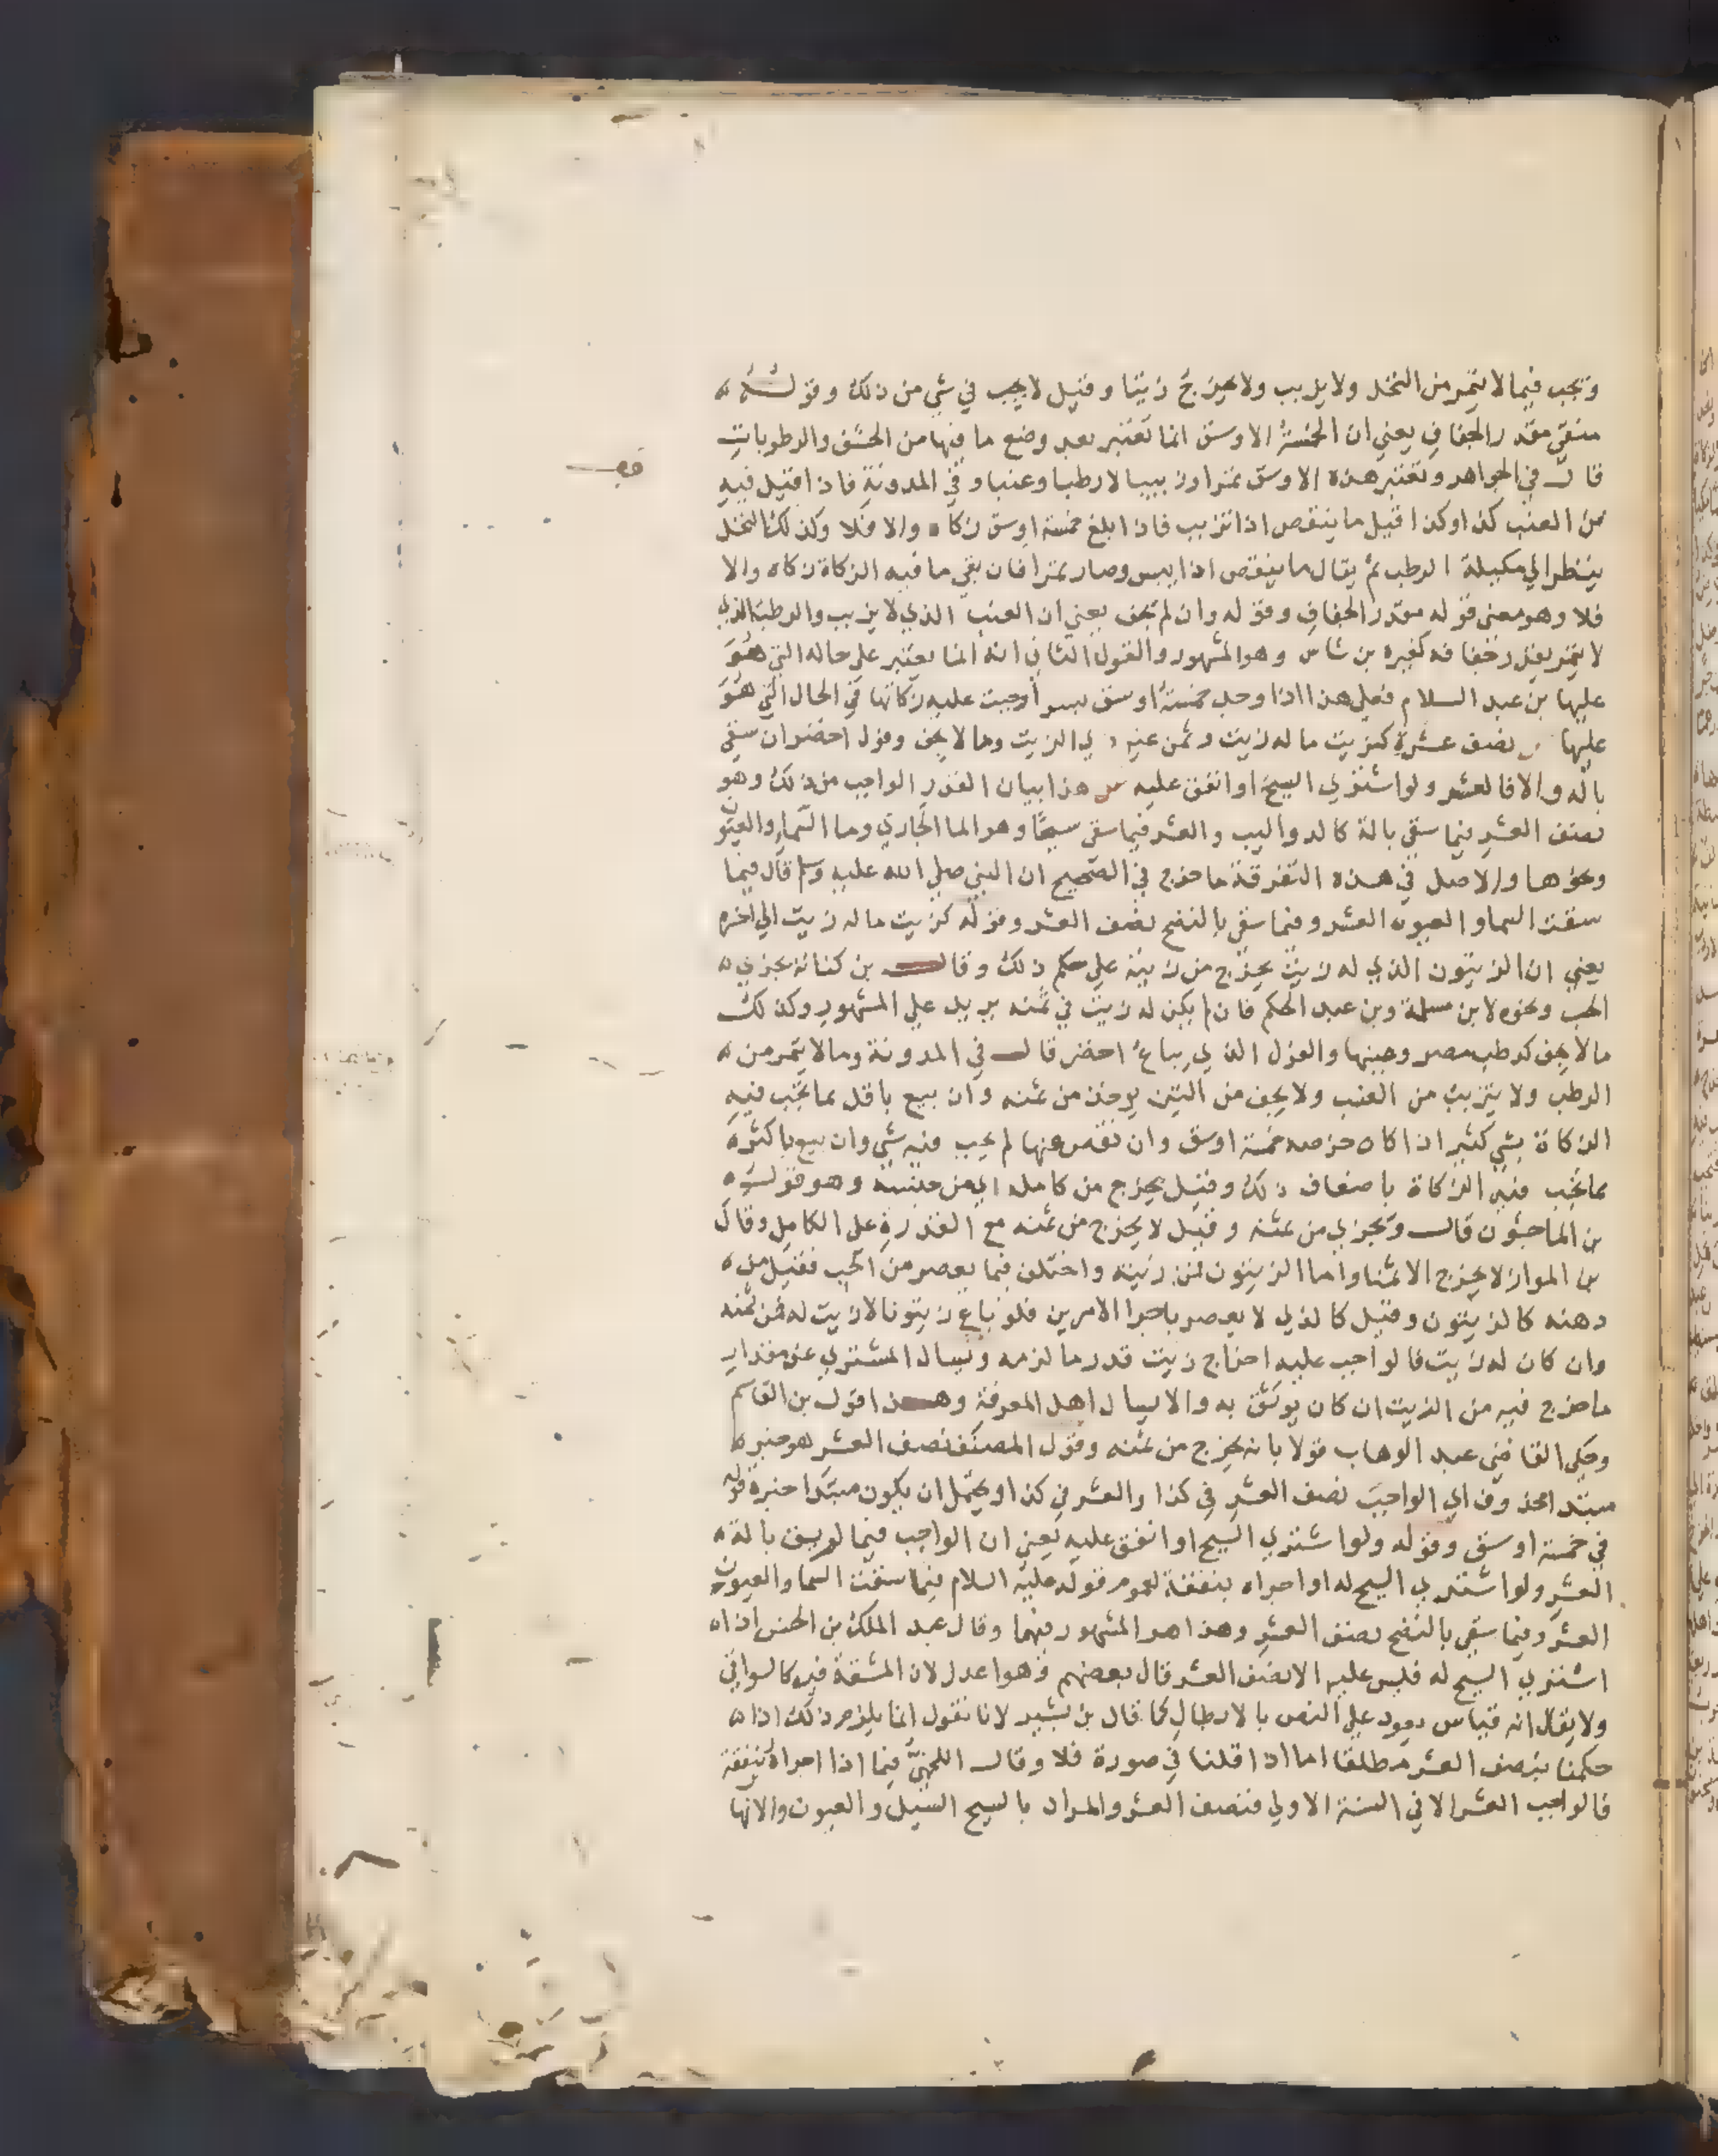 وتجب فيما لا يتمر من النخل ولا يزبب ولا يخرج زيتا وقيل لا يجب في شي من ذلك وقوله
منقي مقدر الجفاف يعني ان الخمسة الاوسق انما تعتبر بعد وضع ما فيها من الحشف والرطوبات
قال في الجواهر وتعتبر هذه الاوسق تمرا او زبيبا لا رطبا وعنبا وفي المدونة فاذا قيل فيه
من العنب كذا وكذا قيل ما ينقص اذا تزبب فاذا بلغ خمسة اوسق زكاه والا فلا وكذلك النخل
ينظر الي مكيلة الرطب ثم يقال ما ينقص اذا يبس وصار تمرا فان بقي ما فيه الزكاة زكاه والا
فلا وهو معني قوله مقدر الجفاف وقوله وان لم يجف يعني ان العنب الذي لا يزبب والرطب الذي
لا يتمر يقدر جفافه كغيره بن شاس وهو المشهور والقول الثاني انه انما يعتبر علي حاله التي هو
عليها بن عبد السلام فعلي هذا اذا وجد خمسة اوسق بسر اوجبت عليه زكاتها في الحال التي هو
عليها نصف عشره كزيت ما له زيت وثمن غير ذي الزيت وما لا يجف وفول اخضر ان سقي
بالة والا فالعشر ولو اشتري السيح او انفق عليه س هذا بيان القدر الواجب من ذلك وهو
نصف العشر فيما سقي بالة كالدواليب والعشر فيما سقي سيحا وهو الما الجاري وما السماء والعيون
ونحوها والاصل في هذه التفرقة ما خرج في الصحيح ان النبي صلي الله عليه وسلم قال فيما
سقت السما والعيون العشر وفيما سقي بالنضح نصف العشر وقوله كزيت ما له زيت الي اخره
يعني ان الزيتون الذي له زيت يخرج من زيته علي حكم ذلك وقال بن كنانة يجزي
الحب ونحوه لابن مسلمة وبن عبد الحكم فان لم يكن له زيت في ثمنه يريد علي المشهور وكذلك
ما لا يجف كرطب مصر وعنبها والفول الذي يباع اخضر قال في المدونة وما لا يتمر من
الرطب ولا يتزبب من العنب ولا يجف من التين يوخذ من ثمنه وان بيع باقل مما تجب فيه
الزكاة بشي كثير اذا كان خرصه خمسة اوسق وان نقص عنها لم يجب فيه شي وان بيع باكثر
مما تجب فيه الزكاة باضعاف ذلك وقيل يخرج من كامله اي من جنسه وهو قول
بن الماجشون قال وتجزي من ثمنه وقيل لا يخرج من ثمنه مع القدرة علي الكامل وقال
بن المواز لا يخرج الا ثمنا واما الزيتون فمن زيته واختلف فيما يعصر من الحب فقيل من
دهنه كالزيتون وقيل كالذي لا يعصر باجرا الامرين فلو باع زيتونا لا زيت له فمن ثمنه
وان كان له زيت فالواجب عليه اخراج زيت قدر ما لزمه ويسال المشتري عن مقدار
ما خرج فيه من الزيت ان كان يوثق به والا يسال اهل المعرفة وهذا قول بن القاسم
وحكي القاضي عبد الوهاب قولا بانه يخرج من ثمنه وقول المصنف نصف العشر هو خبر
مبتدا محذوف اي الواجب نصف العشر في كذا والعشر في كذا ويحتمل ان يكون مبتدا خبره قوله
في خمسة اوسق وقوله ولو اشتري السيح او انفق عليه يعني ان الواجب فيما لو يسق بالة
العشر ولو اشتري السيح له او اجراه بنفقة لعموم قوله عليه السلام فيما سقت السما والعيون
العشر وفيما سقي بالنضح نصف العشر وهذا هو المشهور فيهما وقال عبد الملك بن الحسن اذا
اشتري السيح له فليس عليه الا نصف العشر قال بعضهم وهو اعدل لان المشقة فيه كالسواني
ولا يقال انه قياس يعود علي النص بالابطال كما قال بن بشير لانا نقول انما يلزم ذلك اذا
حكمنا بنصف العشر مطلقا اما اذا قلنا في صورة فلا وقال اللخمي فيما اذا اجراه بنفقة
فالواجب العشر الا في السنة الاولي فنصف العشر والمراد بالسيح السيل والعيون والانها